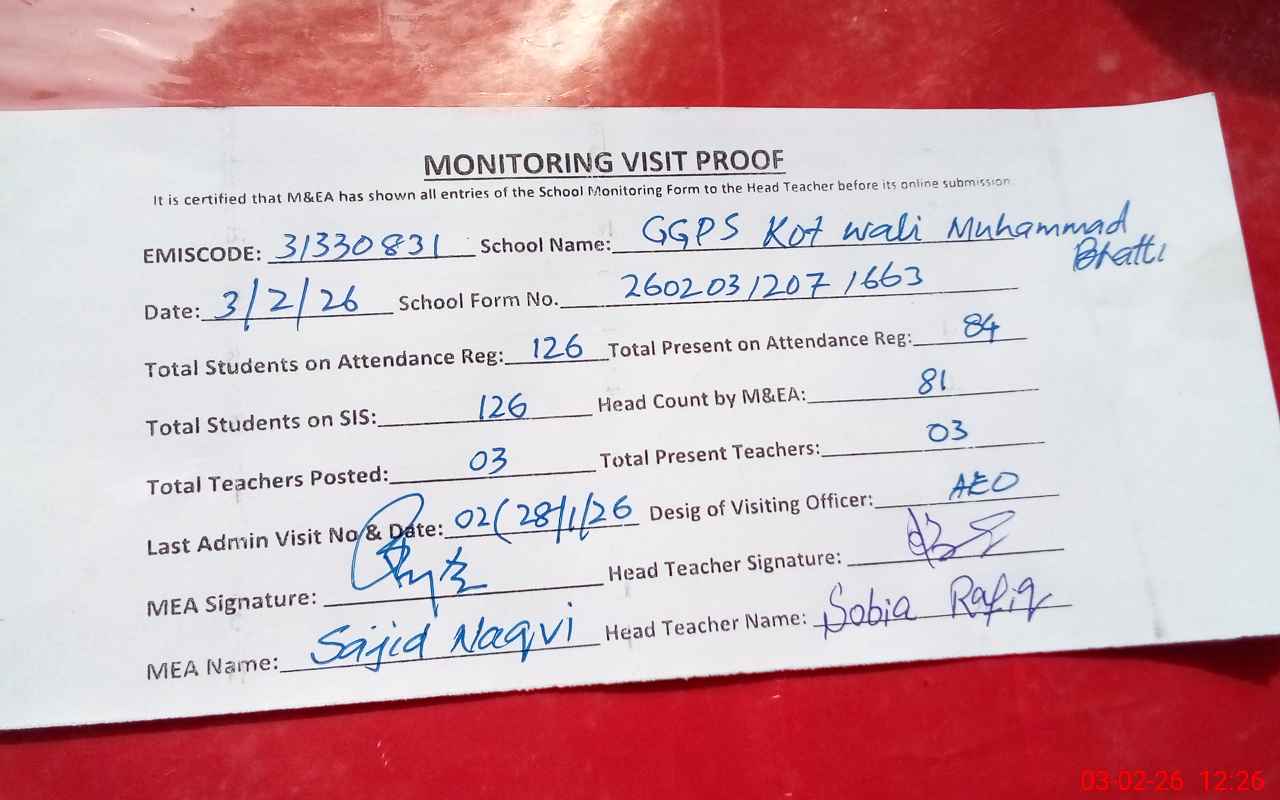 MONITORING VISIT PROOF
It is certified that M&EA has shown all entries of the School Monitoring Form to the Head Teacher before its online submission.
EMISCODE: 31330831 School Name: GGPS Kot wali Muhammad
Bhatti
Date: 3/2/26 School Form No. 26020312071663
Total Students on Attendance Reg: 126 Total Present on Attendance Reg: 84
Total Students on SIS: 126 Head Count by M&EA: 81
Total Teachers Posted: 03 Total Present Teachers: 03
Last Admin Visit No & Date: 02(28/1/26 Desig of Visiting Officer: AEO
MEA Signature: Head Teacher Signature:
MEA Name: Sajid Naqvi Head Teacher Name: Sobia Rafiq
03-02-26 12:26